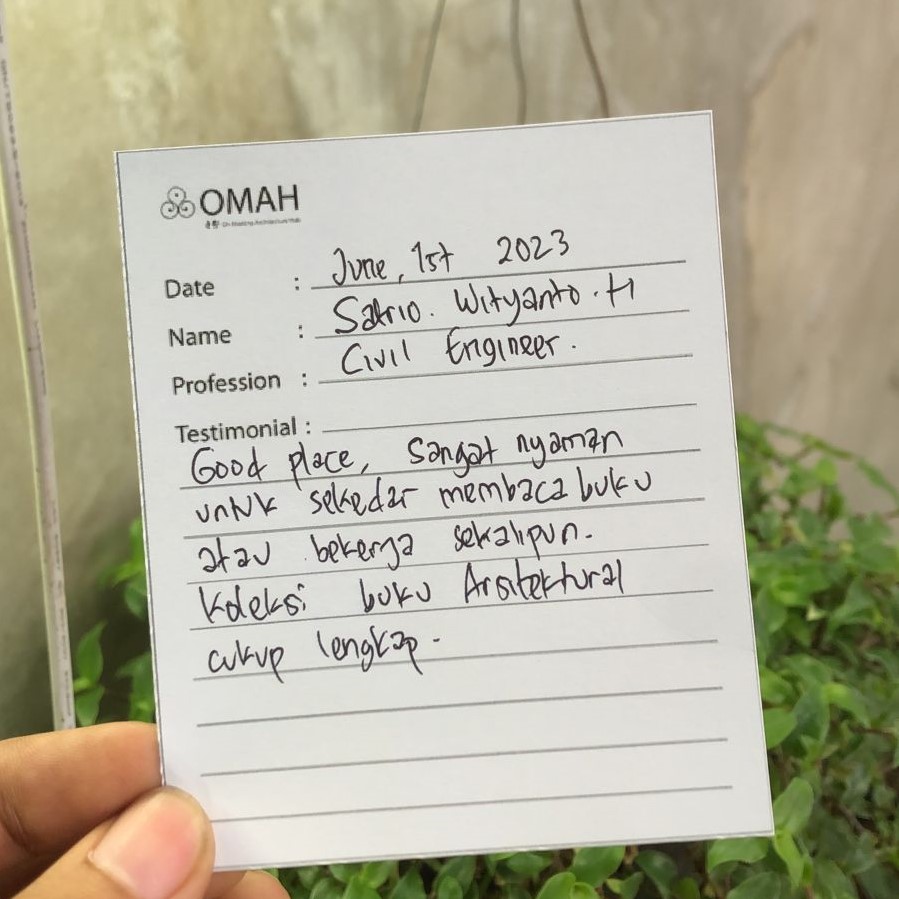 OMAH
Date : June, 1st 2023
Name : Satrio. Wityanto. H
Profession : Civil Engineer.
Testimonial :
Good place, Sangat nyaman
untuk sekedar membaca buku
atau bekerja sekalipun.
Koleksi buku Arsitektural
cukup lengkap.